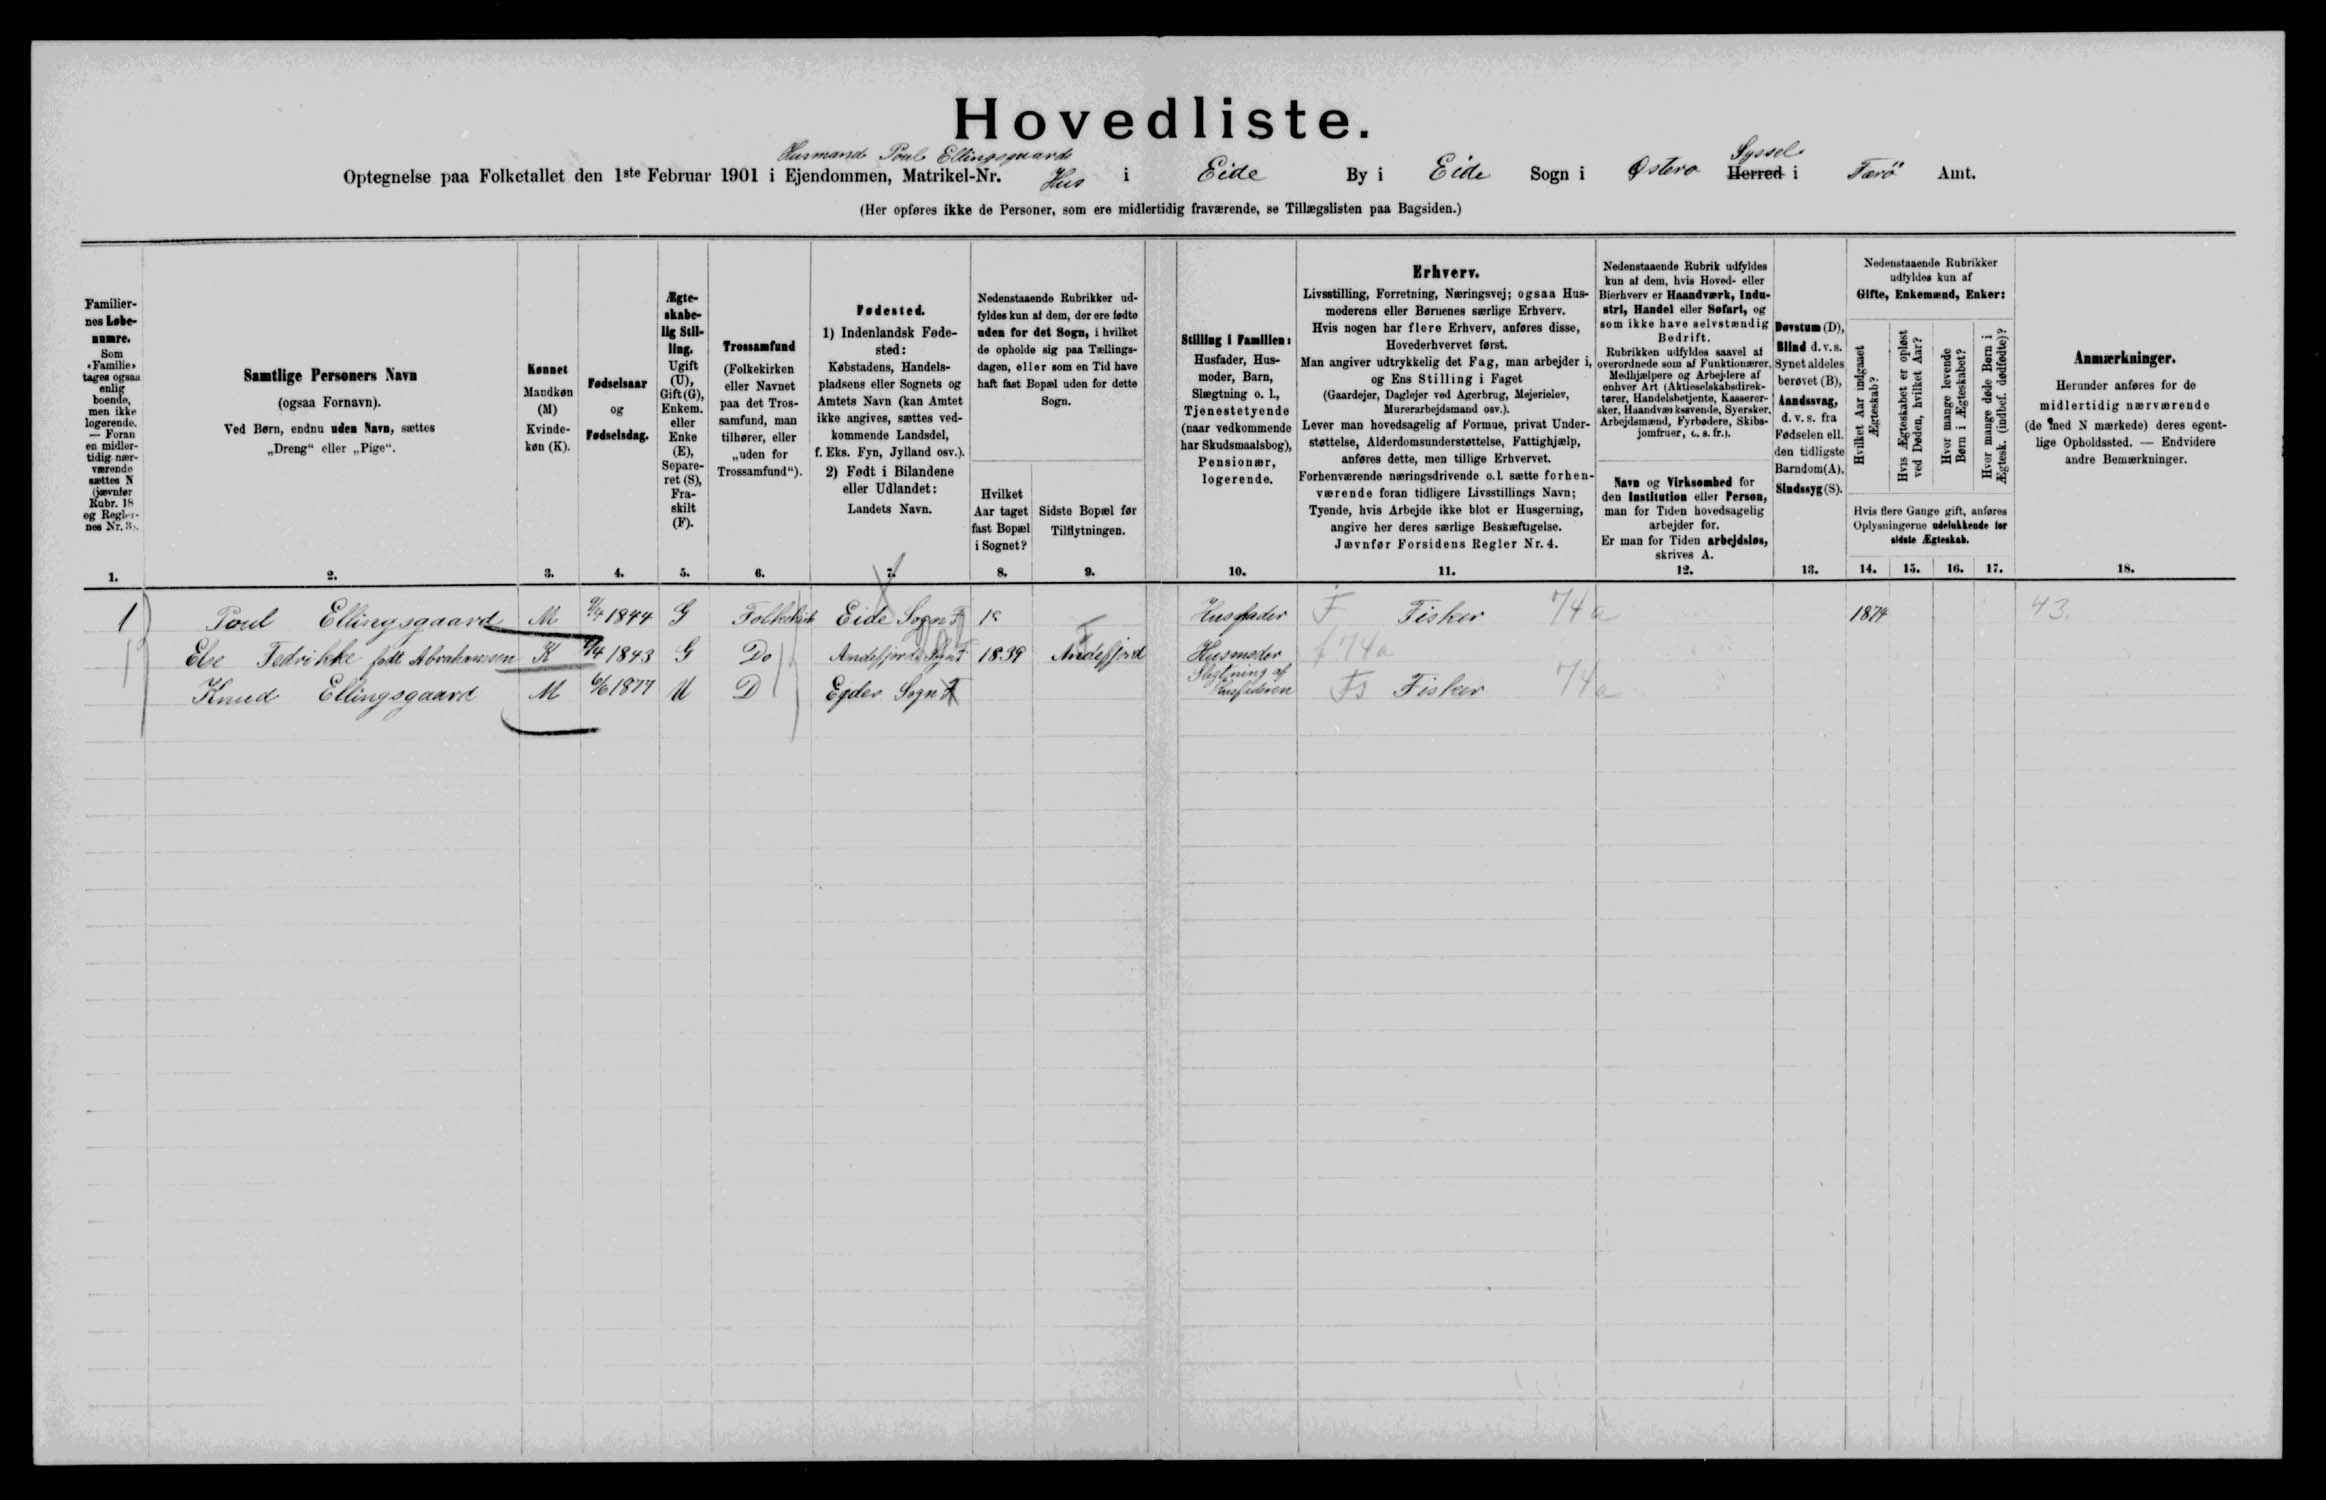 Hovedliste.
Husmand Poul Ellingsgaards
Syssel
Optegnelse paa Folketallet den 1ste Februar 1901 i Ejendommen, Matrikel-Nr. Hus i Eide By i Eide Sogn i Østerø Herred i Færö Amt.
(Her opføres ikke de Personer, som ere midlertidig fraværende, se Tillægslisten paa Bagsiden.)
Familier-
nes Løbe-
numre.
Som
«Familie»
tages ogsaa
enlig
boende,
men ikke
logerende.
— Foran
en midler-
tidig nær-
værende
sættes N
(jævnfør
Rubr. 18
og Regler-
nes Nr. 3).
1.
Samtlige Personers Navn
(ogsaa Fornavn).
Ved Børn, endnu uden Navn, sættes
„Dreng“ eller „Pige“.
2.
Kønnet
Mandkøn
(M)
Kvinde-
køn (K).
3.
Fødselsaar
og
Fødselsdag.
4.
Ægte-
skabe-
lig Stil-
ling.
Ugift
(U),
Gift (G),
Enkem.
eller
Enke
(E),
Separe-
ret (S),
Fra-
skilt
(F).
5.
Trossamfund
(Folkekirken
eller Navnet
paa det Tros-
samfund, man
tilhører, eller
„uden for
Trossamfund“).
6.
Fødested.
1) Indenlandsk Føde-
sted:
Købstadens, Handels-
pladsens eller Sognets og
Amtets Navn (kan Amtet
ikke angives, sættes ved-
kommende Landsdel,
f. Eks. Fyn, Jylland osv.).
2) Født i Bilandene
eller Udlandet:
Landets Navn.
7.
Nedenstaaende Rubrikker ud-
fyldes kun af dem, der ere fødte
uden for det Sogn, i hvilket
de opholde sig paa Tællings-
dagen, eller som en Tid have
haft fast Bopæl uden for dette
Sogn.
Hvilket
Aar taget
fast Bopæl
i Sognet?
8.
Sidste Bopæl før
Tilflytningen.
9.
Stilling i Familien:
Husfader, Hus-
moder, Barn,
Slægtning o. l.,
Tjenestetyende
(naar vedkommende
har Skudsmaalsbog),
Pensionær,
logerende.
10.
Erhverv.
Livsstilling, Forretning, Næringsvej; ogsaa Hus-
moderens eller Børnenes særlige Erhverv.
Hvis nogen har flere Erhverv, anføres disse,
Hovederhvervet først.
Man angiver udtrykkelig det Fag, man arbejder i,
og Ens Stilling i Faget
(Gaardejer, Daglejer ved Agerbrug, Mejerielev,
Murerarbejdsmand osv.).
Lever man hovedsagelig af Formue, privat Under-
støttelse, Alderdomsunderstøttelse, Fattighjælp,
anføres dette, men tillige Erhvervet.
Forhenværende næringsdrivende o.l. sætte forhen-
værende foran tidligere Livsstillings Navn;
Tyende, hvis Arbejde ikke blot er Husgerning,
angive her deres særlige Beskæftigelse.
Jævnfør Forsidens Regler Nr. 4.
11.
Nedenstaaende Rubrik udfyldes
kun af dem, hvis Hoved- eller
Bierhverv er Haandværk, Indu-
stri, Handel eller Søfart, og
som ikke have selvstændig
Bedrift.
Rubrikken udfyldes saavel af
overordnede som af Funktionærer,
Medhjælpere og Arbejdere af
enhver Art (Aktieselskabsdirek-
tører, Handelsbetjente, Kasserer-
sker, Haandværkssvende, Syersker,
Arbejdsmænd, Fyrbødere, Skibs-
jomfruer, o. s. fr.).
Navn og Virksomhed for
den Institution eller Person,
man for Tiden hovedsagelig
arbejder for.
Er man for Tiden arbejdsløs,
skrives A.
12.
Døvstum (D),
Blind d. v. s.
Synet aldeles
berøvet (B),
Aandssvag,
d. v. s. fra
Fødselen ell.
den tidligste
Barndom (A),
Sindssyg (S).
13.
Nedenstaaende Rubrikker
udfyldes kun af
Gifte, Enkemænd, Enker:
Hvilket Aar indgaaet
Ægteskab?
Hvis Ægteskabet er opløst
ved Døden, hvilket Aar?
Hvor mange levende
Børn i Ægteskabet?
Hvor mange døde Børn i
Ægtesk. (indbef. dødfødte)?
Hvis flere Gange gift, anføres
Oplysningerne udelukkende for
sidste Ægteskab.
14. 15. 16. 17.
Anmærkninger.
Herunder anføres for de
midlertidig nærværende
(de med N mærkede) deres egent-
lige Opholdssted. — Endvidere
andre Bemærkninger.
18.
1 Poul Ellingsgaard M 1844 G Folkekirk Eide Sogn F Husfader F Fisker 74a 1874 43.
Else Fedrikke født Abrahamsen K 1843 G Do Andefjords Sogn F 1839 Andefjord Husmoder f 74a
Knud Ellingsgaard M 6/6 1877 U D Ejdes Sogn F Slegtning af Husfaderen Fs Fisker 74a